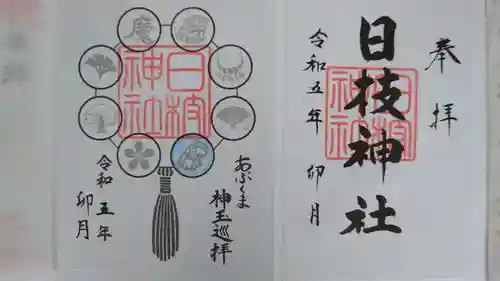 奉拝
日枝神社
日枝神社
令和五年 卯月
あぶくま
神玉巡拝
日枝
神社
令和五年
卯月